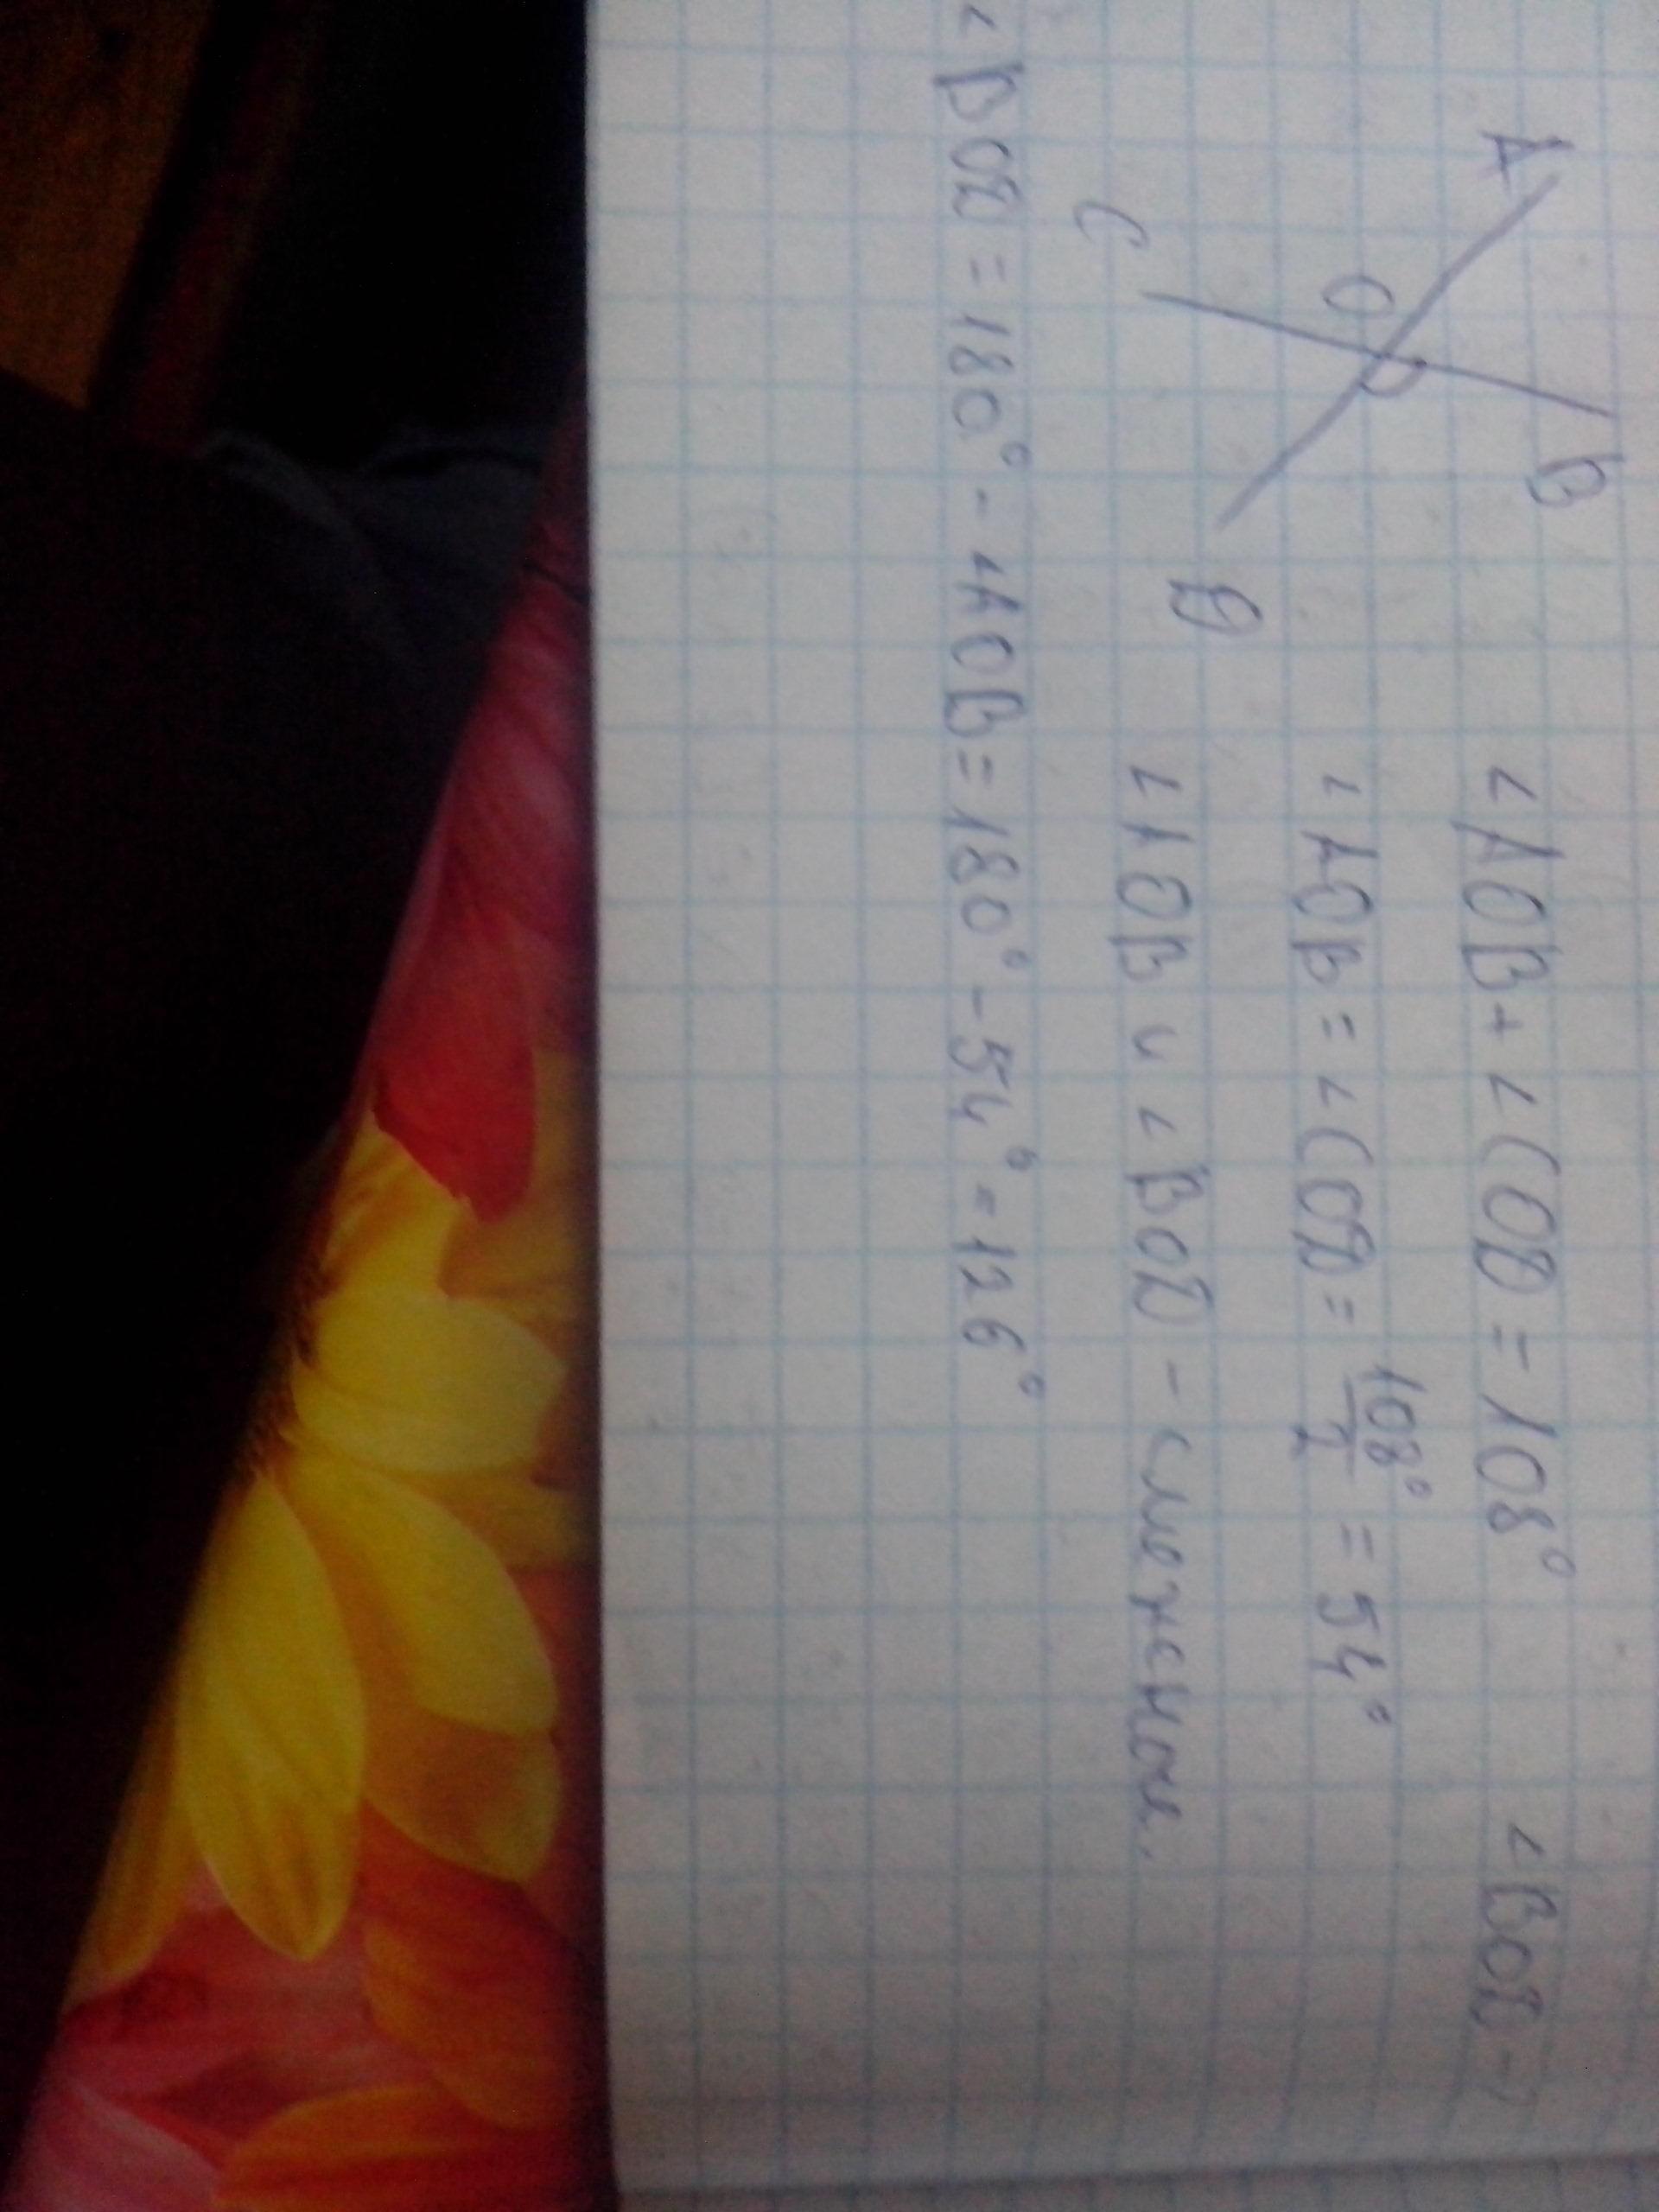 A B ∠AOB + ∠COD = 108° ∠BOD - ?
O ∠AOB = ∠COD = 108°/2 = 54°
C D ∠AOB и ∠BOD - смежные.
∠BOD = 180° - ∠AOB = 180° - 54° = 126°